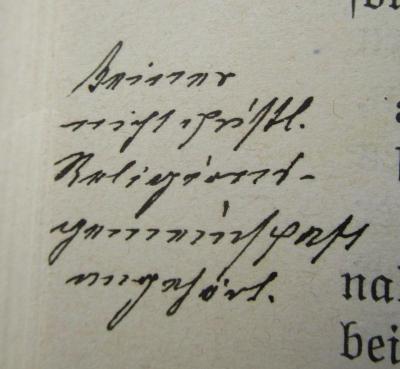 Keiner
nicht christl.
Religions-
gemeinschaft
angehört.
na
bei